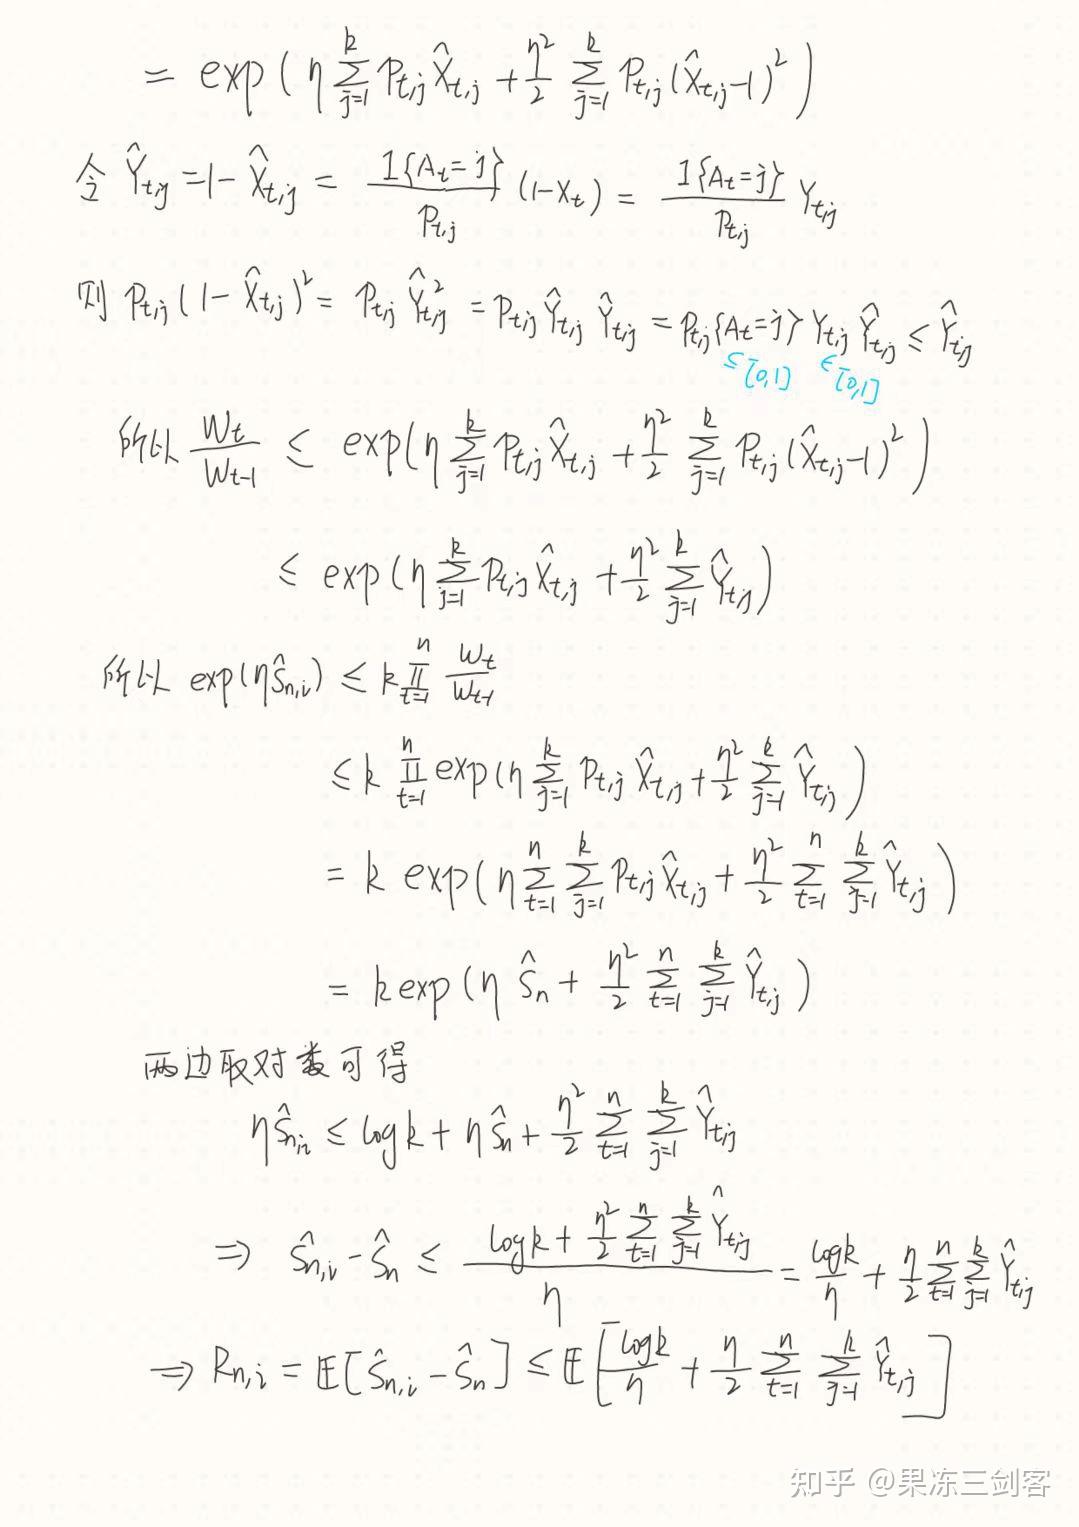 = exp(η∑_{j=1}^{k} P_{t,j} X̂_{t,j} + η²/2 ∑_{j=1}^{k} P_{t,j}(X̂_{t,j}-1)²)
令 Ŷ_{t,j} = 1 - X̂_{t,j} = 1{A_t=j}/P_{t,j} (1-X_t) = 1{A_t=j}/P_{t,j} Y_{t,j}
则 P_{t,j}(1-X̂_{t,j})² = P_{t,j} Ŷ²_{t,j} = P_{t,j} Ŷ_{t,j} Ŷ_{t,j} = P_{t,j}{A_t=j} Y_{t,j} Ŷ_{t,j} ≤ Ŷ_{t,j}
≤[0,1] ∈[0,1]
所以 W_t/W_{t-1} ≤ exp(η∑_{j=1}^{k} P_{t,j} X̂_{t,j} + η²/2 ∑_{j=1}^{k} P_{t,j}(X̂_{t,j}-1)²)
≤ exp(η∑_{j=1}^{k} P_{t,j} X̂_{t,j} + η²/2 ∑_{j=1}^{k} Ŷ_{t,j})
所以 exp(ηŜ_{n,i}) ≤ k∏_{t=1}^{n} W_t/W_{t-1}
≤ k∏_{t=1}^{n} exp(η∑_{j=1}^{k} P_{t,j} X̂_{t,j} + η²/2 ∑_{j=1}^{k} Ŷ_{t,j})
= k exp(η∑_{t=1}^{n}∑_{j=1}^{k} P_{t,j} X̂_{t,j} + η²/2 ∑_{t=1}^{n}∑_{j=1}^{k} Ŷ_{t,j})
= k exp(η Ŝ_n + η²/2 ∑_{t=1}^{n}∑_{j=1}^{k} Ŷ_{t,j})
两边取对数可得
ηŜ_{n,i} ≤ log k + ηŜ_n + η²/2 ∑_{t=1}^{n}∑_{j=1}^{k} Ŷ_{t,j}
⇒ Ŝ_{n,i} - Ŝ_n ≤ (log k + η²/2 ∑_{t=1}^{n}∑_{j=1}^{k} Ŷ_{t,j})/η = log k/η + η/2 ∑_{t=1}^{n}∑_{j=1}^{k} Ŷ_{t,j}
⇒ R_{n,i} = 𝔼[Ŝ_{n,i} - Ŝ_n] ≤ 𝔼[log k/η + η/2 ∑_{t=1}^{n}∑_{j=1}^{k} Ŷ_{t,j}]
知乎 @果冻三剑客